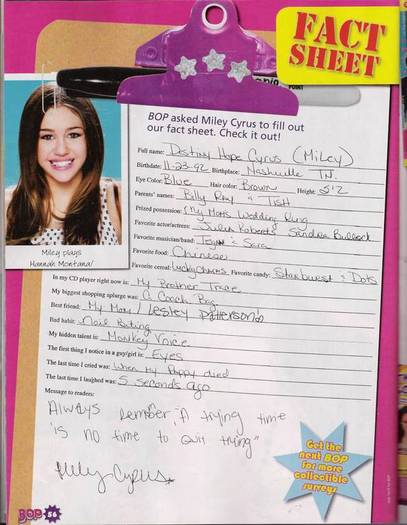 FACT
SHEET
BOP asked Miley Cyrus to fill out
our fact sheet. Check it out!
Full name: Destiny Hope Cyrus (Miley)
Birthdate: 11-23-92 Birthplace: Nashville TN.
Eye Color: Blue Hair color: Brown Height: 5'2
Parents' names: Billy Ray & Tish
Prized possession: My Mom's Wedding Ring
Favorite actor/actress: Julia Roberts Sandra Bullock
Favorite musician/band: Tegan & Sara
Favorite food: Chinese
Favorite cereal: Lucky Charms Favorite candy: Starburst & Dots
In my CD player right now is: My Brother Trace
My biggest shopping splurge was: A Coach Bag
Best friend: My Mom / Lesley Patterson
Bad habit: Nail Biting
My hidden talent is: Monkey Voice
The first thing I notice in a guy/girl is: Eyes
The last time I cried was: When My Pappy died
The last time I laughed was: 5 seconds ago
Message to readers:
Always remember, "A trying time
is no time to quit trying"
Miley Cyrus
Miley plays
Hannah Montana!
Get the
next BOP
for more
collectible
surveys
BOP 56